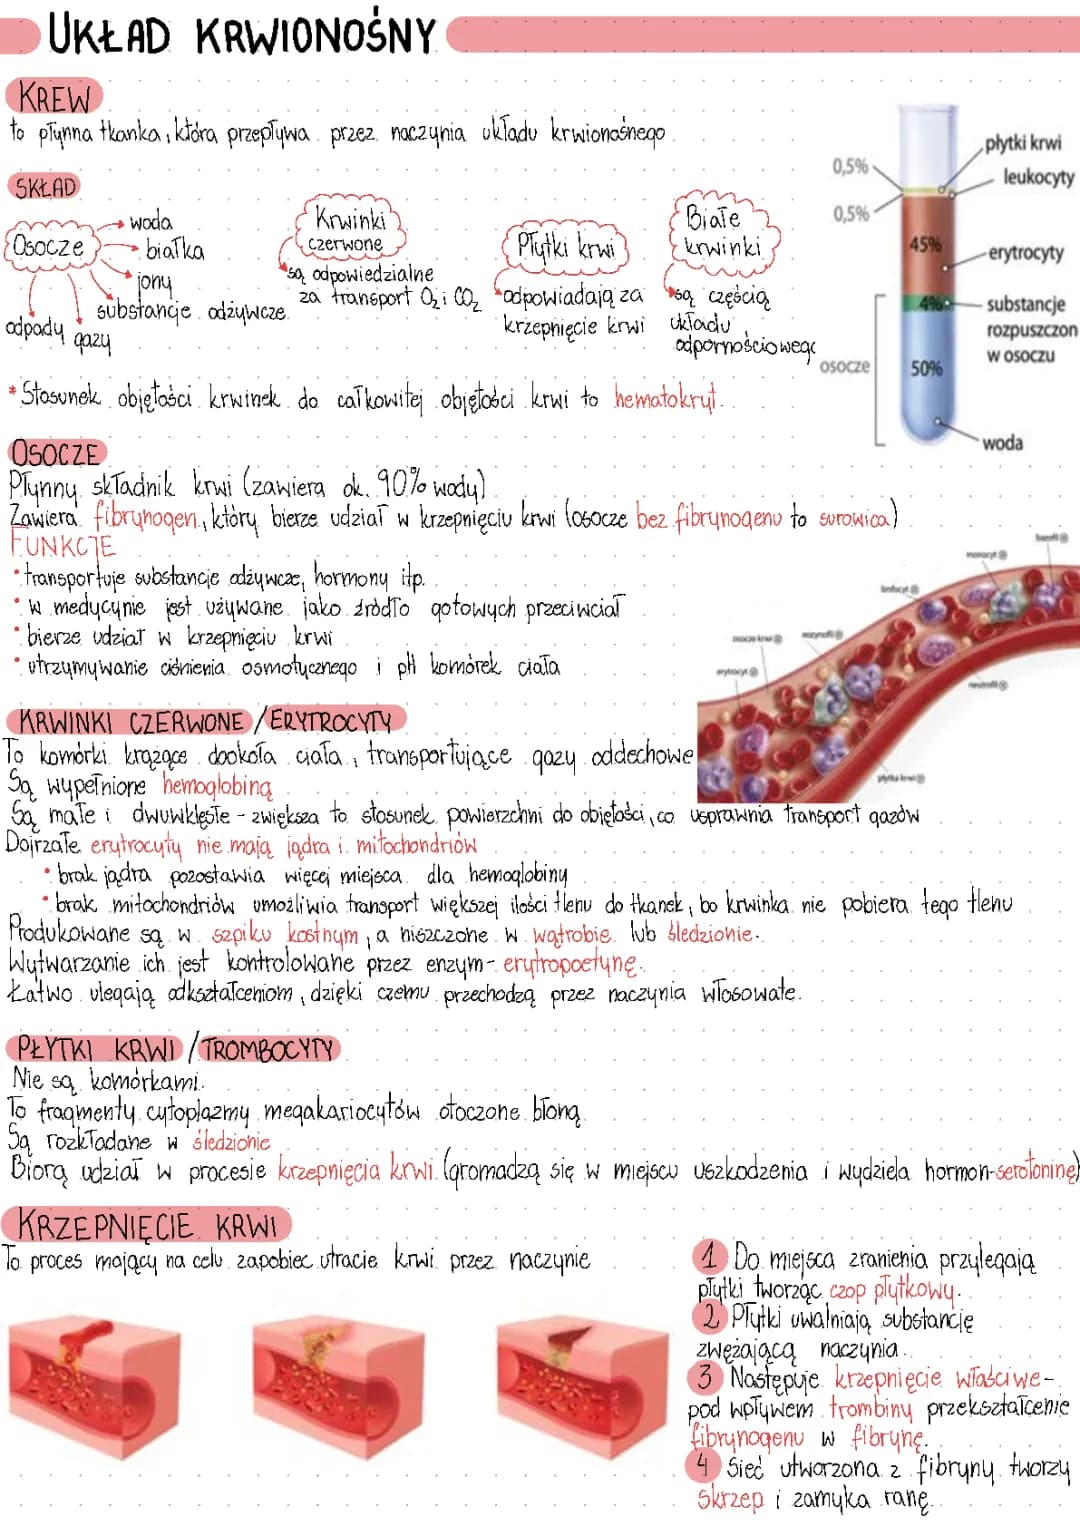 UKŁAD KRWIONOŚNY
KREW
to płynna tkanka, która przepływa przez naczynia układu krwionośnego.
SKŁAD
Osocze
woda
białka
jony
substancje odżywcze
gazy
odpady
Krwinki
czerwone
są odpowiedzialne
za transport O₂ i CO₂
Płytki krwi
odpowiadają za
krzepnięcie krwi
Białe
krwinki
są częścią
układu
odpornościowego
0,5%
0,5%
45%
4%
50%
osocze
płytki krwi
leukocyty
erytrocyty
substancje
rozpuszczon
w osoczu
woda
* Stosunek objętości krwinek do całkowitej objętości krwi to hematokryt.
OSOCZE
Płynny składnik krwi (zawiera ok. 90% wody)
Zawiera fibrynogen, który bierze udział w krzepnięciu krwi (osocze bez fibrynogenu to surowica)
FUNKCJE
• transportuje substancje odżywcze, hormony itp.
• w medycynie jest używane jako źródło gotowych przeciwciał
• bierze udział w krzepnięciu krwi
• utrzymywanie ciśnienia osmotycznego i pH komórek ciała
bazofil
monocyt
limfocyt
eozynofil
osocze krwi
erytrocyt
neutrofil
płytka krwi
KRWINKI CZERWONE / ERYTROCYTY
To komórki krążące dookoła ciała, transportujące gazy oddechowe
Są wypełnione hemoglobiną
Są małe i dwuwklęsłe - zwiększa to stosunek powierzchni do objętości, co usprawnia transport gazów
Dojrzałe erytrocyty nie mają jądra i mitochondriów
• brak jądra pozostawia więcej miejsca dla hemoglobiny
• brak mitochondriów umożliwia transport większej ilości tlenu do tkanek, bo krwinka nie pobiera tego tlenu
Produkowane są w szpiku kostnym, a niszczone w wątrobie lub śledzionie.
Wytwarzanie ich jest kontrolowane przez enzym - erytropoetynę.
Łatwo ulegają odkształceniom, dzięki czemu przechodzą przez naczynia włosowate.
PŁYTKI KRWI / TROMBOCYTY
Nie są komórkami.
To fragmenty cytoplazmy megakariocytów otoczone błoną.
Są rozkładane w śledzionie
Biorą udział w procesie krzepnięcia krwi (gromadzą się w miejscu uszkodzenia i wydziela hormon-serotoninę)
KRZEPNIĘCIE KRWI
To proces mający na celu zapobiec utracie krwi przez naczynie
1 Do miejsca zranienia przylegają
płytki tworząc czop płytkowy.
2 Płytki uwalniają substancję
zwężającą naczynia.
3 Następuje krzepnięcie właściwe -
pod wpływem trombiny przekształcenie
fibrynogenu w fibrynę.
4 Sieć utworzona z fibryny tworzy
skrzep i zamyka ranę.